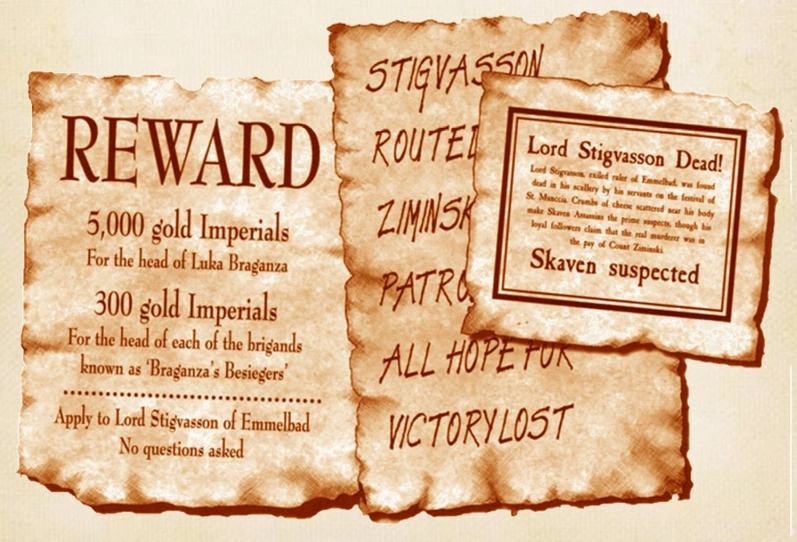 REWARD
5,000 gold Imperials
For the head of Luka Braganza
300 gold Imperials
For the head of each of the brigands
known as 'Braganza's Besiegers'
Apply to Lord Stigvasson of Emmelbad
No questions asked
STIGVASSON
ROUTED
ZIMINSK
PATRO
ALL HOPE FOR
VICTORY LOST
Lord Stigvasson Dead!
Lord Stigvasson, exiled ruler of Emmelbad, was found
dead in his scullery by his servants on the festival of
St. Munccia. Crumbs of cheese scattered near his body
make Skaven Assassins the prime suspects, though his
loyal followers claim that the real murderer was in
the pay of Count Ziminski.
Skaven suspected